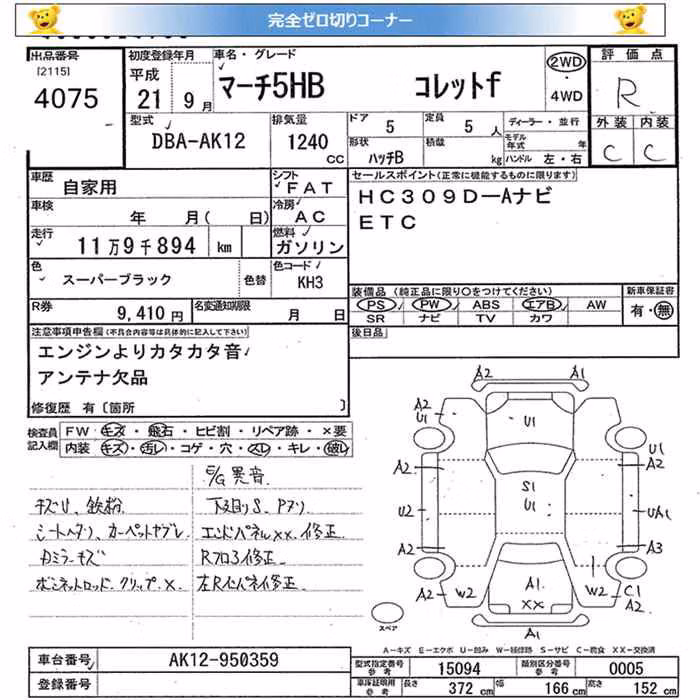 完全ゼロ切りコーナー
出品番号
[2115]
4075
初度登録年月
平成
21年 9月
車名・グレード
マーチ5HB コレットf
2WD
・
4WD
評価点
R
型式
DBA-AK12
排気量
1240
CC
ドア
5
定員
5 人
形状
ハッチB
積載
kg
ディーラー・並行
モデル
年式 年
ハンドル 左・右
外装 内装
C C
車歴
自家用
シフト
FAT
車検
年 月( 日)
冷房
AC
走行
11万9千894 km
燃料
ガソリン
色
スーパーブラック
色替
色コード
KH3
R券
9,410 円
名変通知期限
月 日
セールスポイント(正常に機能するものに限ります)
HC309D-Aナビ
ETC
装備品(純正品に限り〇をつけてください)
PS PW ABS エアB AW
SR ナビ TV カワ
新車保証書
有・無
後日品
注意事項申告欄(不具合内容等は具体的に記入して下さい)
エンジンよりカタカタ音
アンテナ欠品
修復歴 有〔箇所 〕
検査員
記入欄
FW キズ・飛石・ヒビ割・リペア跡・×要
内装 キズ・汚レ・コゲ・穴・スレ・キレ・破レ
E/G異音
キズU、鉄粉
下廻りS、Pアリ
シートヘタリ、カーペットヤブレ
エンドパネル××、修正
Rフロア修正
ボンネットロッド、クリップ×
A2 A1
A2
U1
U1
U1
A2
A2
S1
U1
U2
UA1
A2
A3
A2
W2
A1
XX
W2
C1
A2
A1
スペア
A-キズ E-エクボ U-凹み W-補修跡 S-サビ C-腐食 XX-交換済
車台番号
AK12-950359
登録番号
型式指定番号
参考
15094
類別区分番号
参考
0005
車庫証明用
参考
長さ
372 cm
幅
166 cm
高さ
152 cm